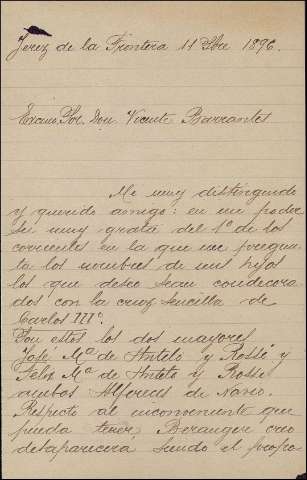 Jerez de la Frontera 11 Sbre 1896.
Excmo. Sor. Don Vicente Barrantes
Mi muy distinguido
y querido amigo: en mi poder
su muy grata del 1º de los
corrientes en la que me pregun
ta los nombres de mis hijos
los que deseo sean condecora
dos con la cruz sencilla de
Carlos IIIº.
Son estos los dos mayores
José Mª de Hoteto y Rossé y
Felix Mª de Hoteto y Rosse
ambos Alfereces de Navio.
Respecto al inconveniente que
pueda tener Beranger creo
desaparecerá siendo el propio